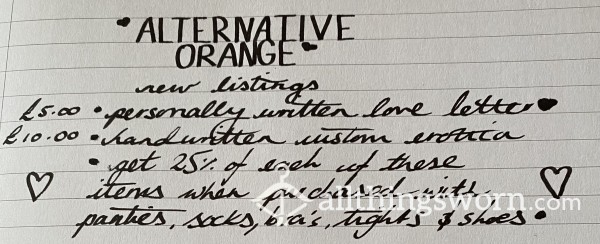 ALTERNATIVE
ORANGE
new listings
£5.00 • personally written love letter
£10.00 • handwritten custom erotica
• get 25% of each of these
items when purchased with
panties, socks, bra's, tights & shoes •
allthingsworn.com